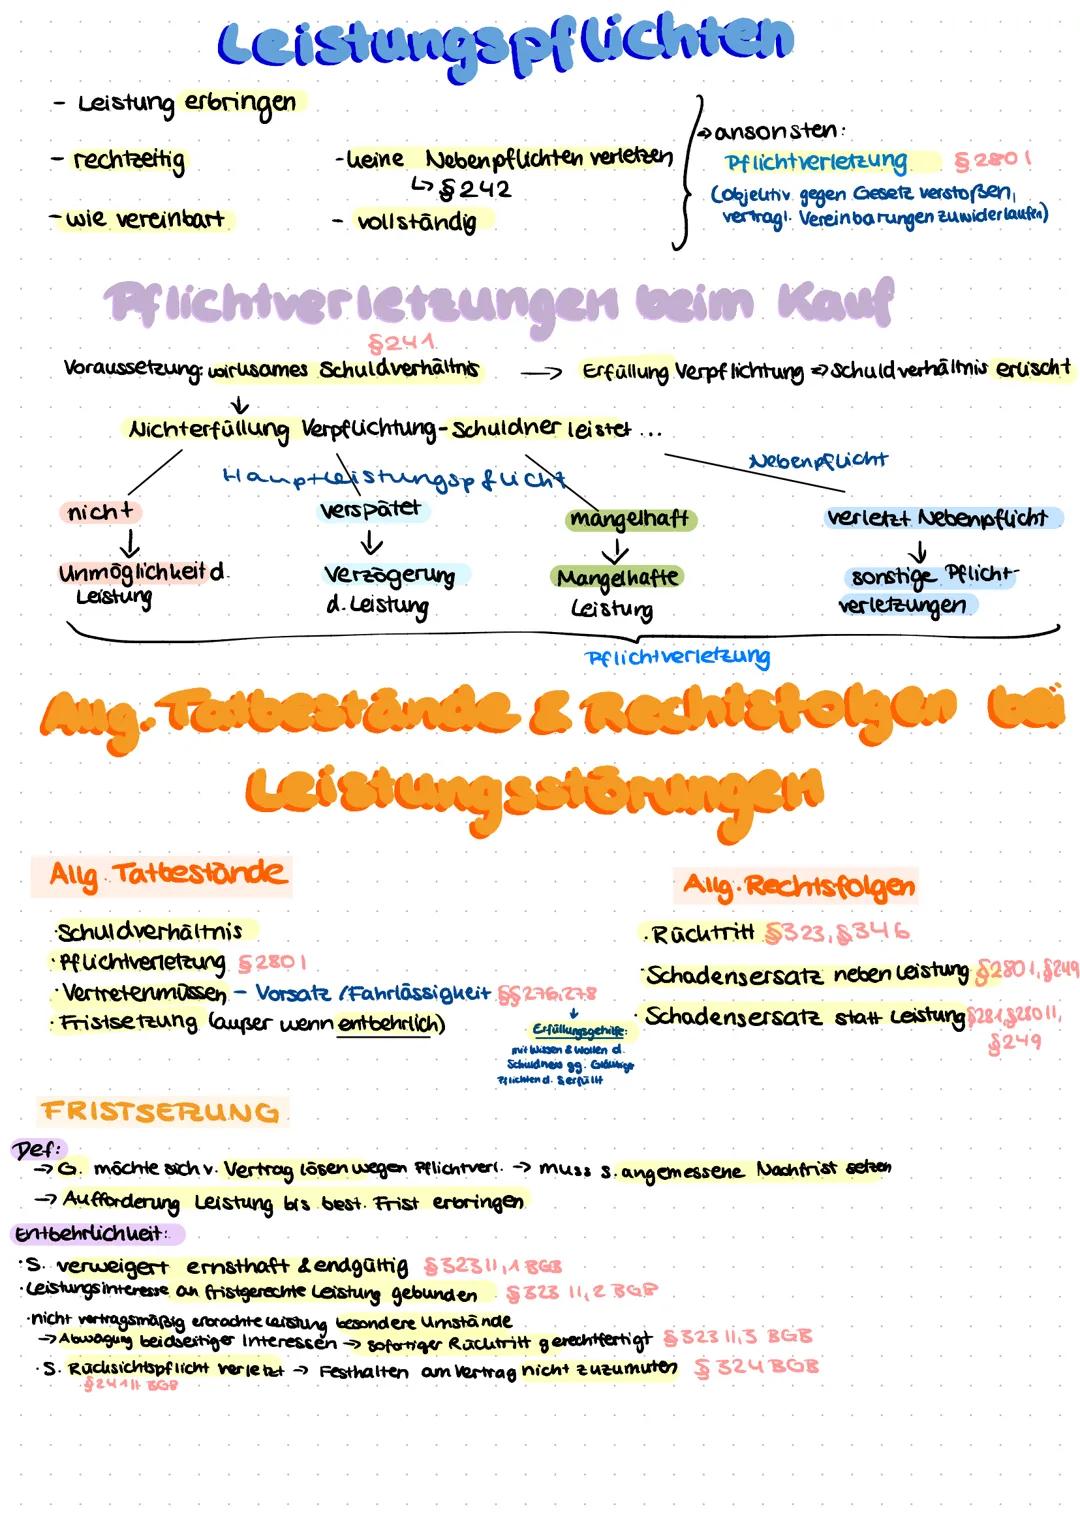 Leistungspflichten
- Leistung erbringen
- rechtzeitig
- wie vereinbart
- keine Nebenpflichten verletzen
↳ § 242
- vollständig
→ ansonsten:
Pflichtverletzung § 280 I
(objektiv gegen Gesetz verstoßen,
vertragl. Vereinbarungen zuwiderlaufen)
Pflichtverletzungen beim Kauf
§ 241
Voraussetzung: wirksames Schuldverhältnis → Erfüllung Verpflichtung => Schuldverhältnis erlischt
↓
Nichterfüllung Verpflichtung - Schuldner leistet ...
Hauptleistungspflicht
Nebenpflicht
nicht
verspätet
mangelhaft
verletzt Nebenpflicht
↓ ↓ ↓ ↓
Unmöglichkeit d.
Leistung
Verzögerung
d. Leistung
Mangelhafte
Leistung
sonstige Pflicht-
verletzungen
Pflichtverletzung
Allg. Tatbestände & Rechtsfolgen bei
Leistungsstörungen
Allg. Tatbestände
· Schuldverhältnis
· Pflichtverletzung § 280 I
· Vertretenmüssen - Vorsatz / Fahrlässigkeit §§ 276, 278
· Fristsetzung (außer wenn entbehrlich)
↓
Erfüllungsgehilfe:
mit Wissen & Wollen d.
Schuldners gg. Gläubiger
Pflichten d. S erfüllt
Allg. Rechtsfolgen
· Rücktritt § 323, § 346
· Schadensersatz neben Leistung § 280 I, § 249
· Schadensersatz statt Leistung § 281, § 280 II,
§ 249
FRISTSETZUNG
Def:
→ G. möchte sich v. Vertrag lösen wegen Pflichtverl. → muss S. angemessene Nachfrist setzen
→ Aufforderung Leistung bis best. Frist erbringen
Entbehrlichkeit:
· S. verweigert ernsthaft & endgültig § 323 II, 1 BGB
· Leistungsinteresse an fristgerechte Leistung gebunden § 323 II, 2 BGB
· nicht vertragsmäßig erbrachte Leistung besondere Umstände
→ Abwägung beidseitiger Interessen → sofortiger Rücktritt gerechtfertigt § 323 II, 3 BGB
· S. Rücksichtspflicht verletzt → Festhalten am Vertrag nicht zuzumuten § 324 BGB
§ 241 II BGB